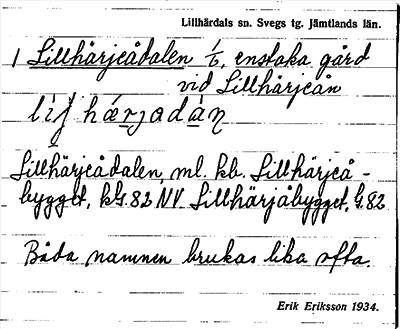 Lillhärdals sn. Svegs tg. Jämtlands län.
1 Lillhärjeådalen 1/6, enstaka gård
vid Lillhärjeån
Lillhärjeådalen, ml. kb. Lillhärjeå-
bygget, kG. 82 NV. Lillhärjåbygget, G. 82
Båda namnen brukas lika ofta.
Erik Eriksson 1934.